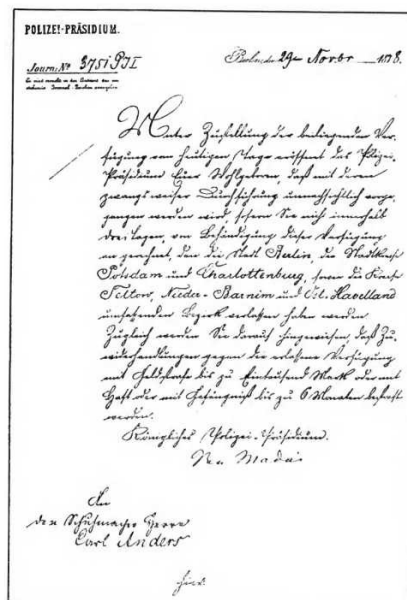 POLIZEI-PRÄSIDIUM.
Journ: No 3751 P J I
Berlin, den 29ten Novbr 1878.
Es wird ersucht in der Antwort das
Unter Zustellung der beiliegenden Ver-
fügung vom heutigen Tage eröffnet das Polizei-
Präsidium Euer Wohlgeboren, daß mit deren
zwangsweiser Durchführung unnachsichtlich vorge-
gangen werden wird, sofern Sie nicht innerhalb
drei Tagen, von Behändigung dieser Verfügung
an gerechnet, den die Stadt Berlin, die Stadtkreise
Potsdam und Charlottenburg, sowie die Kreise
Teltow, Nieder-Barnim und Ost-Havelland
umfassenden Bezirk verlassen haben werden
Zugleich werden Sie darauf hingewiesen, daß Zu-
widerhandlungen gegen die erlassene Verfügung
mit Geldstrafe bis zu Eintausend Mark oder mit
Haft oder mit Gefängniß bis zu 6 Monaten bestraft
werden.
Königliches Polizei-Präsidium.
v. Madai
An
den Schuhmacher Herrn
Carl Anders
hier.